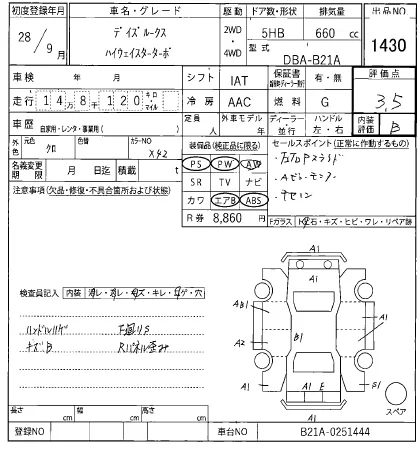 初度登録年月 車名・グレード 駆動 ドア数・形状 排気量 出品NO
28年9月 デイズルークス 2WD・4WD 5HB 660 cc 1430
ハイウェイスターターボ 型式 DBA-B21A
車検 年 月 シフト IAT 保証書 有・無 評価点
走行 14万8千120 キロ・マイル 冷房 AAC 燃料 G 3.5
車歴 自家用・レンタ・事業用( ) 定員 人 外車モデル 年 ディーラー 並行 ハンドル 左・右 内装評価 B
外色 元色 クロ 色替 カラーNO X42 装備品(純正品に限る) セールスポイント(正常に作動するもの)
名義変更期限 月 日迄 積載 t PS PW AW
注意事項(欠品・修復・不具合箇所および状態) SR TV ナビ
カワ エアB ABS
R券 8,860円 Fガラス
A1
検査員記入 内装
A1
AB1 B1 A1
ハンドルハゲ 下廻りS
A2
キズB Rパネル歪み
A1 E S1
A1 スペア
長さ cm 幅 cm 高さ cm
登録NO 車台NO B21A-0251444